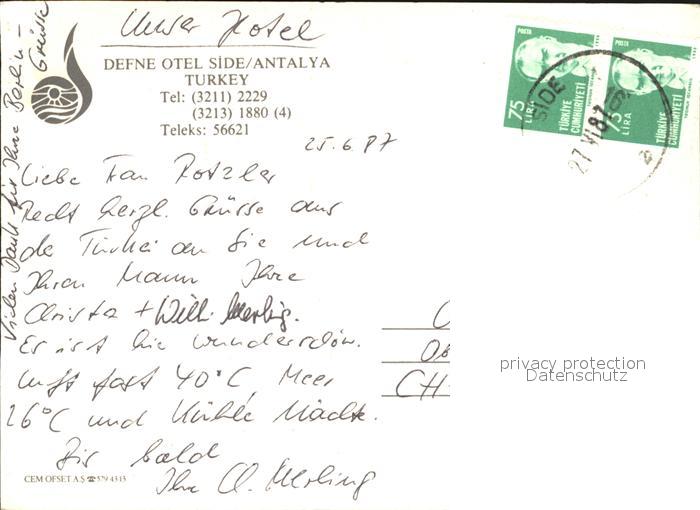 Unser Hotel
DEFNE OTEL SİDE/ANTALYA
TURKEY
Tel: (3211) 2229
(3213) 1880 (4)
Teleks: 56621
75
LIRA
POSTA
TÜRKİYE
CUMHURİYETİ
75
LIRA
POSTA
TÜRKİYE
CUMHURİYETİ
SIDE
27 VI 87
25.6.87
Liebe Frau Rotzler
Recht herzl. Grüsse aus
der Türkei an Sie und
Ihren Mann Ihre
Christa + Willi Merling.
Es ist hie wunderschön.
Luft fast 40°C, Meer
26°C und kühle Nächte.
Bis bald
Ihre C. Merling
Vielen Dank für Ihre Berlin-
Grüsse
CH-
CEM OFSET A.Ş ☎ 579 43 13
privacy protection
Datenschutz